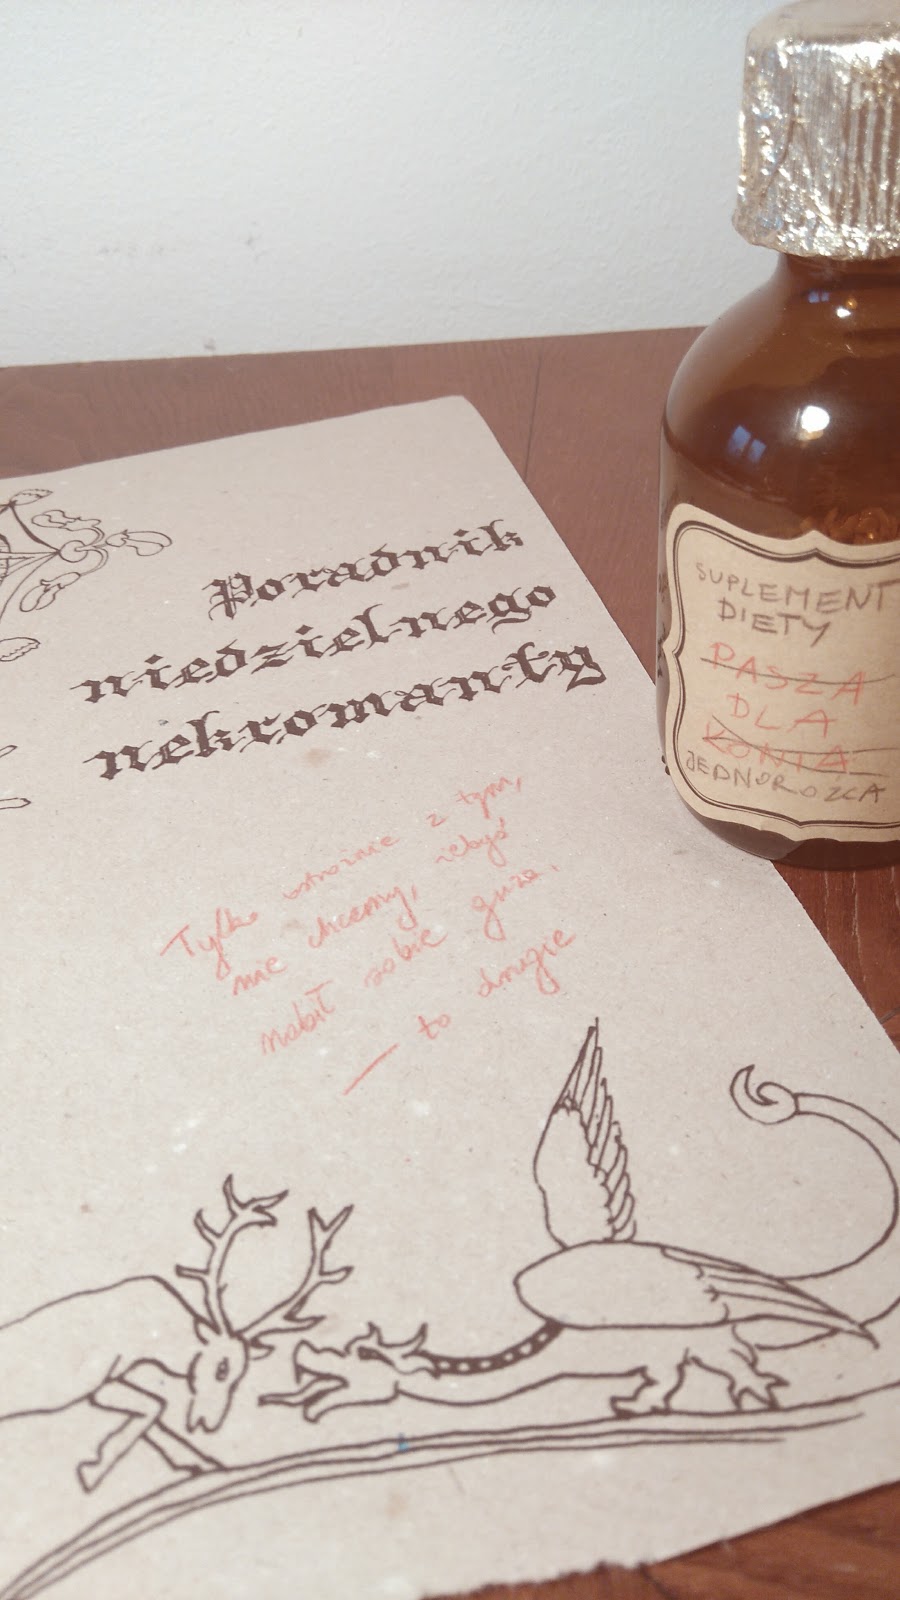 Poradnik
niedzielnego
nekromanty
Tylko ostrożnie z tym,
nie chcemy, żebyś
nabił sobie guza.
— to drugie
SUPLEMENT
DIETY
PASZA
DLA
KONIA
JEDNOROŻCA